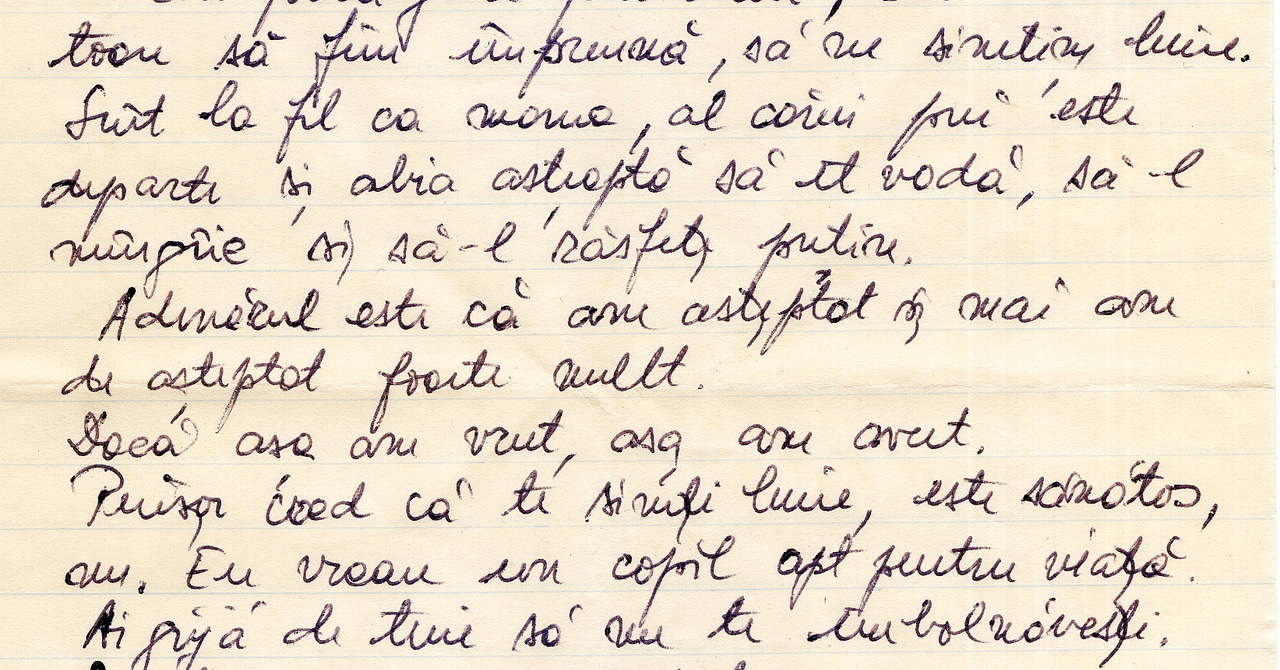 să fim împreună, să ne simțim bine.
Sînt la fel ca mama, al cărui pui este
departe și abia așteaptă să îl vadă, să-l
mîngîie și să-l răsfețe puțin.
Adevărul este că am așteptat și mai am
de așteptat foarte mult.
Dacă așa am vrut, așa am avut.
Puișor cred că te simți bine, este sănătos,
nu. Eu vreau un copil apt pentru viață.
Ai grijă de tine să nu te îmbolnăvești.